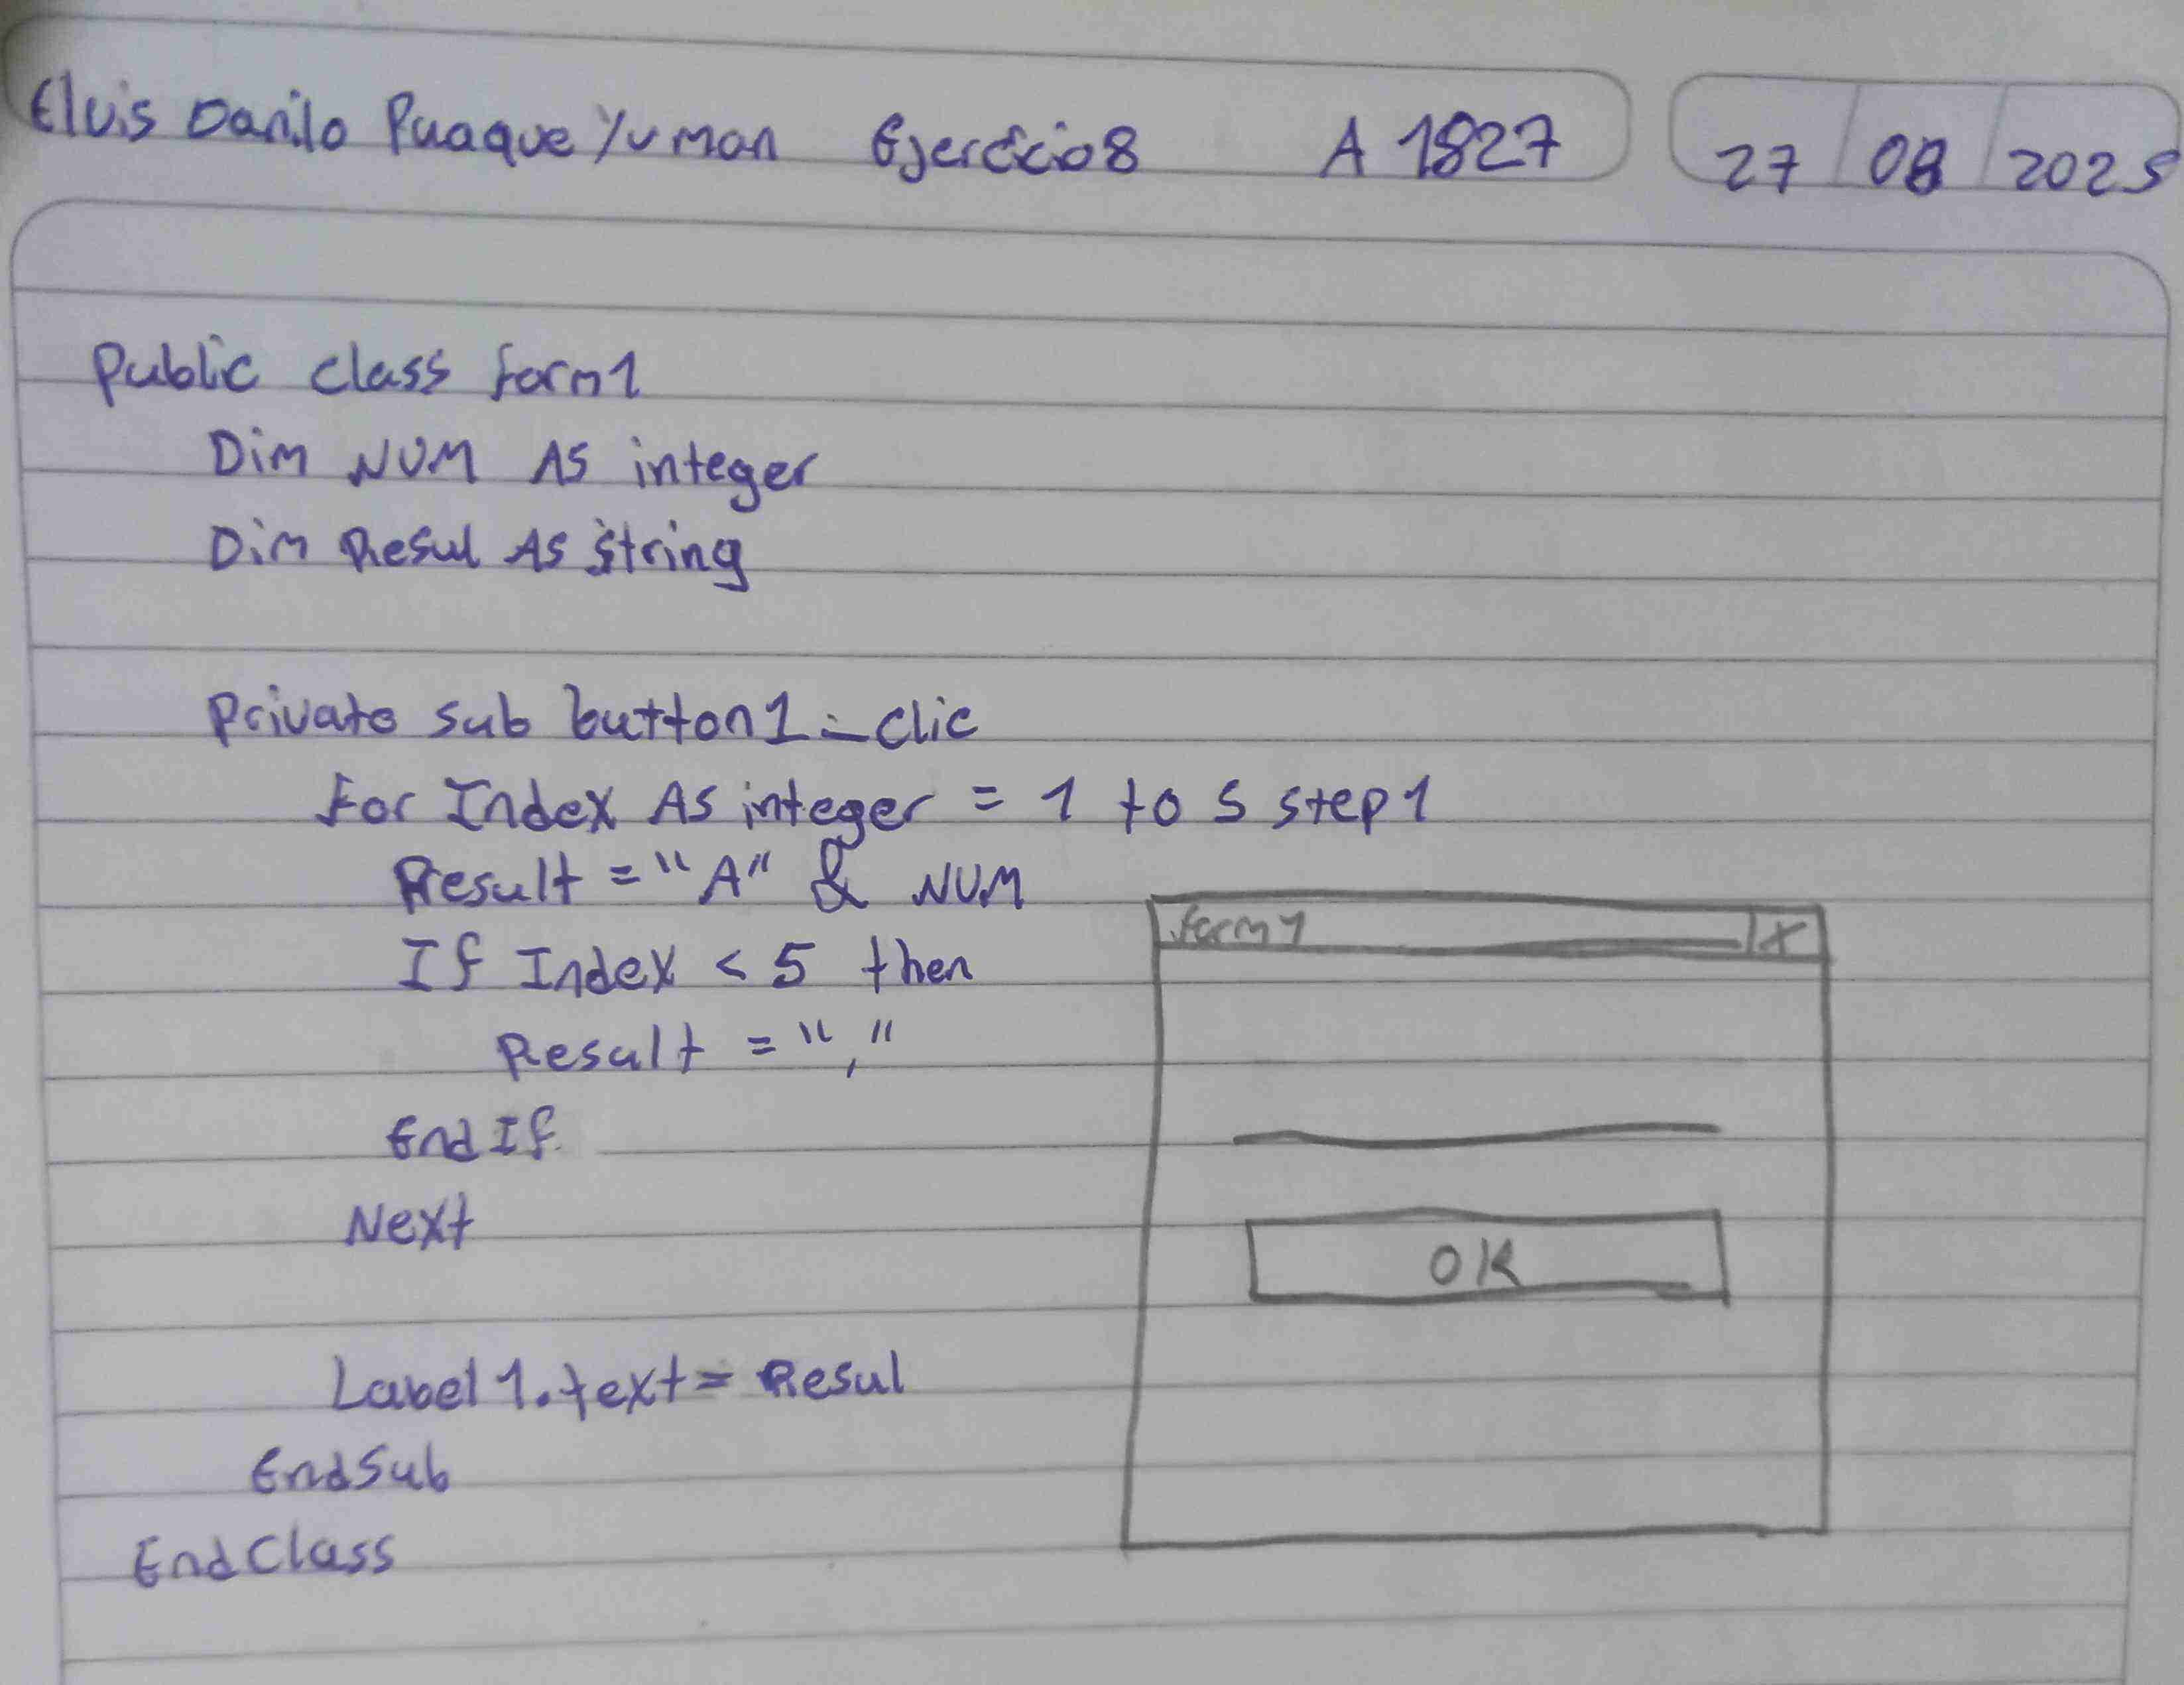 Elvis Danilo Puaque Yuman Ejercicio8 A 1827 27 08 2025
Public class form1
Dim NUM As integer
Dim Resul As string
Private sub button1_clic
For Index As integer = 1 to 5 step 1
Result = "A" & NUM
If Index < 5 then
Result = ","
End If
Next
Label1.text = Resul
EndSub
EndClass
form1 X
OK